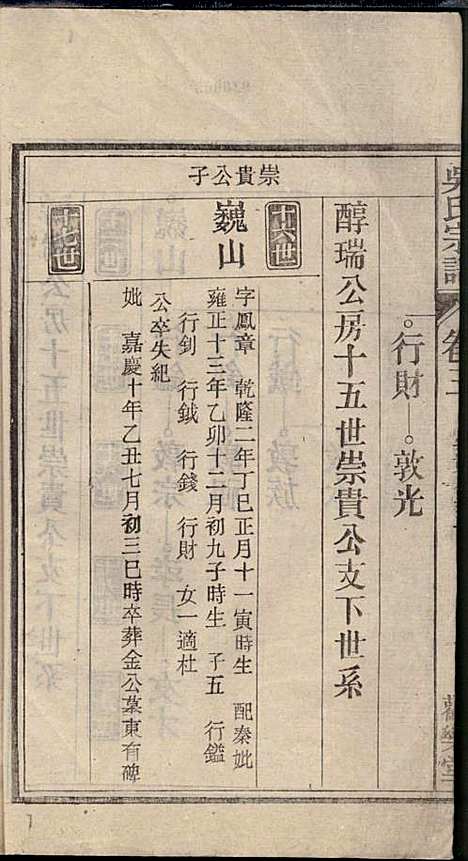 吳氏宗譜 卷三
行財 敦光
醇瑞公房十五世崇貴公支下世系
十六世
崇貴公子
巍山
字鳳章 乾隆二年丁巳正月十一寅時生 配秦妣
雍正十三年乙卯十二月初九子時生 子五 行鑑
行釗 行鉞 行錢 行財 女一適杜
公卒失紀
妣 嘉慶十年乙丑七月初三巳時卒葬金公墓東有碑
十七世